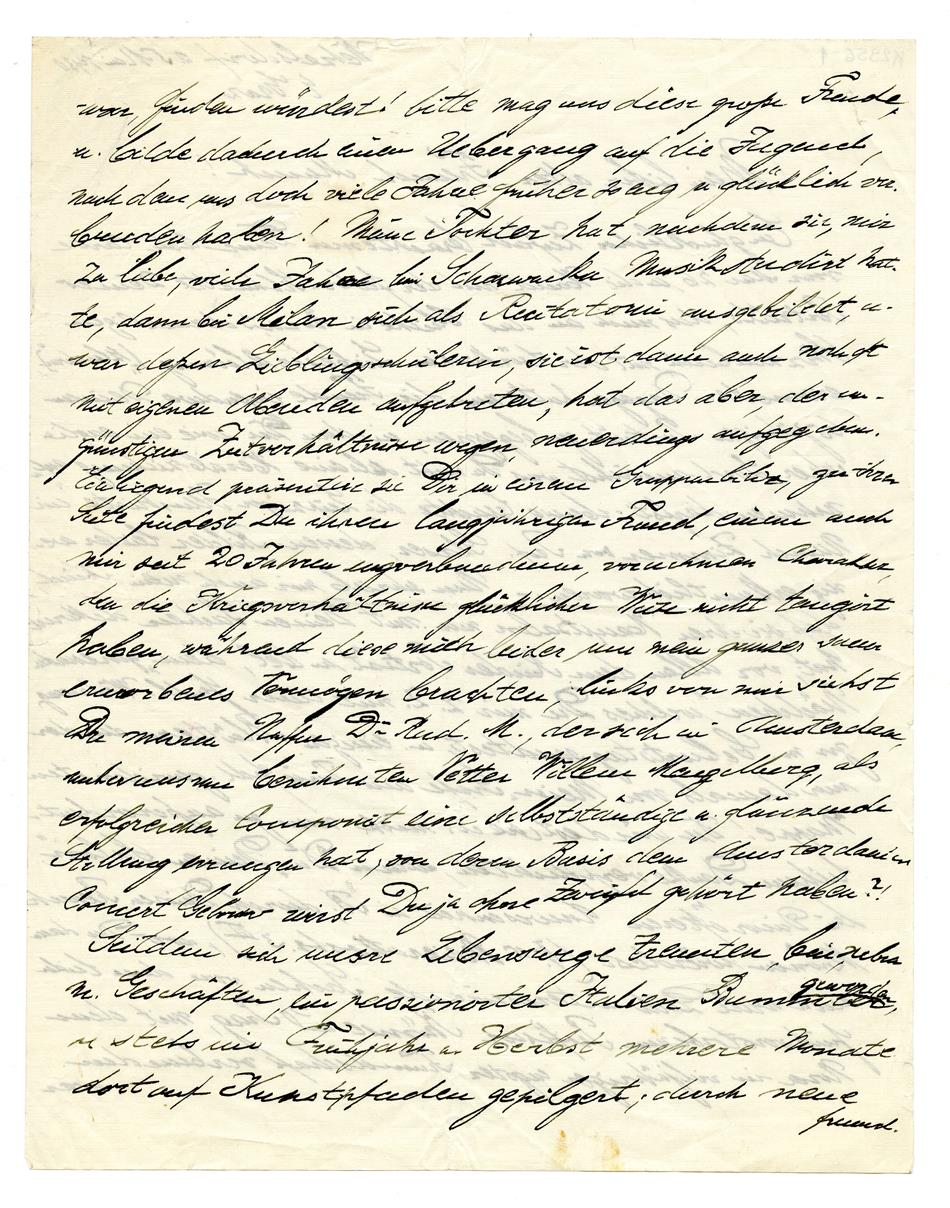 war, finden würdest! bitte mag uns diese große Freude,
u. bilde dadurch einen Uebergang auf die Jugend,
nach dem uns doch viele Jahre früher so eng u glücklich ver-
bunden haben! Meine Tochter hat, nachdem sie, mir
zu liebe, viele Jahre bei Scharwenka Musik studirt hat-
te, dann bei Milan sich als Recitatorin ausgebildet, u-
war deßen Lieblingsschülerin, sie ist dann auch noch oft
mit eigenen Abenden aufgetreten, hat das aber, der un-
günstigen Zeitverhältnisse wegen, neuerdings aufgegeben.
Einliegend präsentire sie Dir in einem Gruppenbilde, zu ihrer
Seite findest Du ihren langjährigen Freund, einem auch
mir seit 20 Jahren engverbundenen, vornehmen Charakter,
den die Kriegsverhältnisse glücklicher Weise nicht tangirt
haben, während diese mich leider um mein ganzes
erworbenes Vermögen brachten, links von mir siehst
Du meinen Neffen Dr Rud. M., der sich in Amsterdam,
unter unserm berühmten Vetter Willem Mengelberg, als
erfolgreicher Componist eine selbstständige u. glänzende
Stellung errungen hat, von deren Basis dem Amsterdamer
Concert Gebouw wirst Du ja ohne Zweifel gehört haben?!
Seitdem sich unsre Lebenswege trennten, bin neben
m. Geschäften, ein passionirter Italien Bummler geworden,
u stets im Frühjahr u. Herbst mehrere Monate
dort auf Kunstpfaden gepilgert; durch neue
freund.